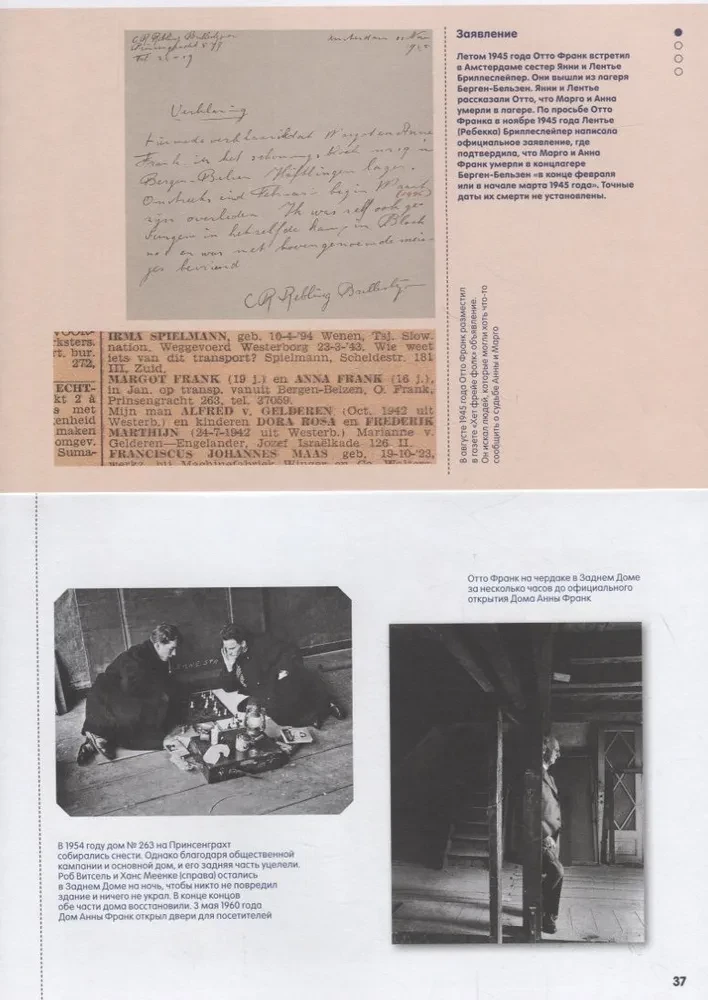 C R Rebling Brilleslijper
Amsterdam
Verklaring
Frank in het
Bergen-Belsen Häftlingen lager.
zijn overleden. Ik was zelf ook ge-
in hetzelfde kamp in Block
en was met bovengenoemde mei-
jes bevriend
C R Rebling Brilleslijper
Заявление
Летом 1945 года Отто Франк встретил
в Амстердаме сестер Янни и Лентье
Бриллеслейпер. Они вышли из лагеря
Берген-Бельзен. Янни и Лентье
рассказали Отто, что Марго и Анна
умерли в лагере. По просьбе Отто
Франка в ноябре 1945 года Лентье
(Ребекка) Бриллеслейпер написала
официальное заявление, где
подтвердила, что Марго и Анна
Франк умерли в концлагере
Берген-Бельзен «в конце февраля
или в начале марта 1945 года». Точные
даты их смерти не установлены.
rksters.
rt. bur.
272,
ECHT-
kt 2 à
s met
enheid
maken
omgev.
Suma-
IRMA SPIELMANN, geb. 10-4-'94 Wenen, Tsj. Slow.
nation. Weggevoerd Westerborg 23-3-'43. Wie weet
iets van dit transport? Spielmann, Scheldestr. 181
III, Zuid.
MARGOT FRANK (19 j.) en ANNA FRANK (16 j.),
in Jan. op transp. vanuit Bergen-Belzen, O. Frank,
Prinsengracht 263, tel. 37059.
Mijn man ALFRED v. GELDEREN (Oct. 1942 uit
Westerb.) en kinderen DORA ROSA en FREDERIK
MARTHIJN (24-7-1942 uit Westerb.) Marianne v.
Gelderen—Engelander, Jozef Israëlkade 126 II.
FRANCISCUS JOHANNES MAAS geb. 19-10-'23,
В августе 1945 года Отто Франк разместил
в газете «Хет фрейе фолк» объявление.
Он искал людей, которые могли хоть что-то
сообщить о судьбе Анны и Марго
Отто Франк на чердаке в Заднем Доме
за несколько часов до официального
открытия Дома Анны Франк
В 1954 году дом № 263 на Принсенграхт
собирались снести. Однако благодаря общественной
кампании и основной дом, и его задняя часть уцелели.
Роб Витсель и Ханс Меенке (справа) остались
в Заднем Доме на ночь, чтобы никто не повредил
здание и ничего не украл. В конце концов
обе части дома восстановили. 3 мая 1960 года
Дом Анны Франк открыл двери для посетителей
37